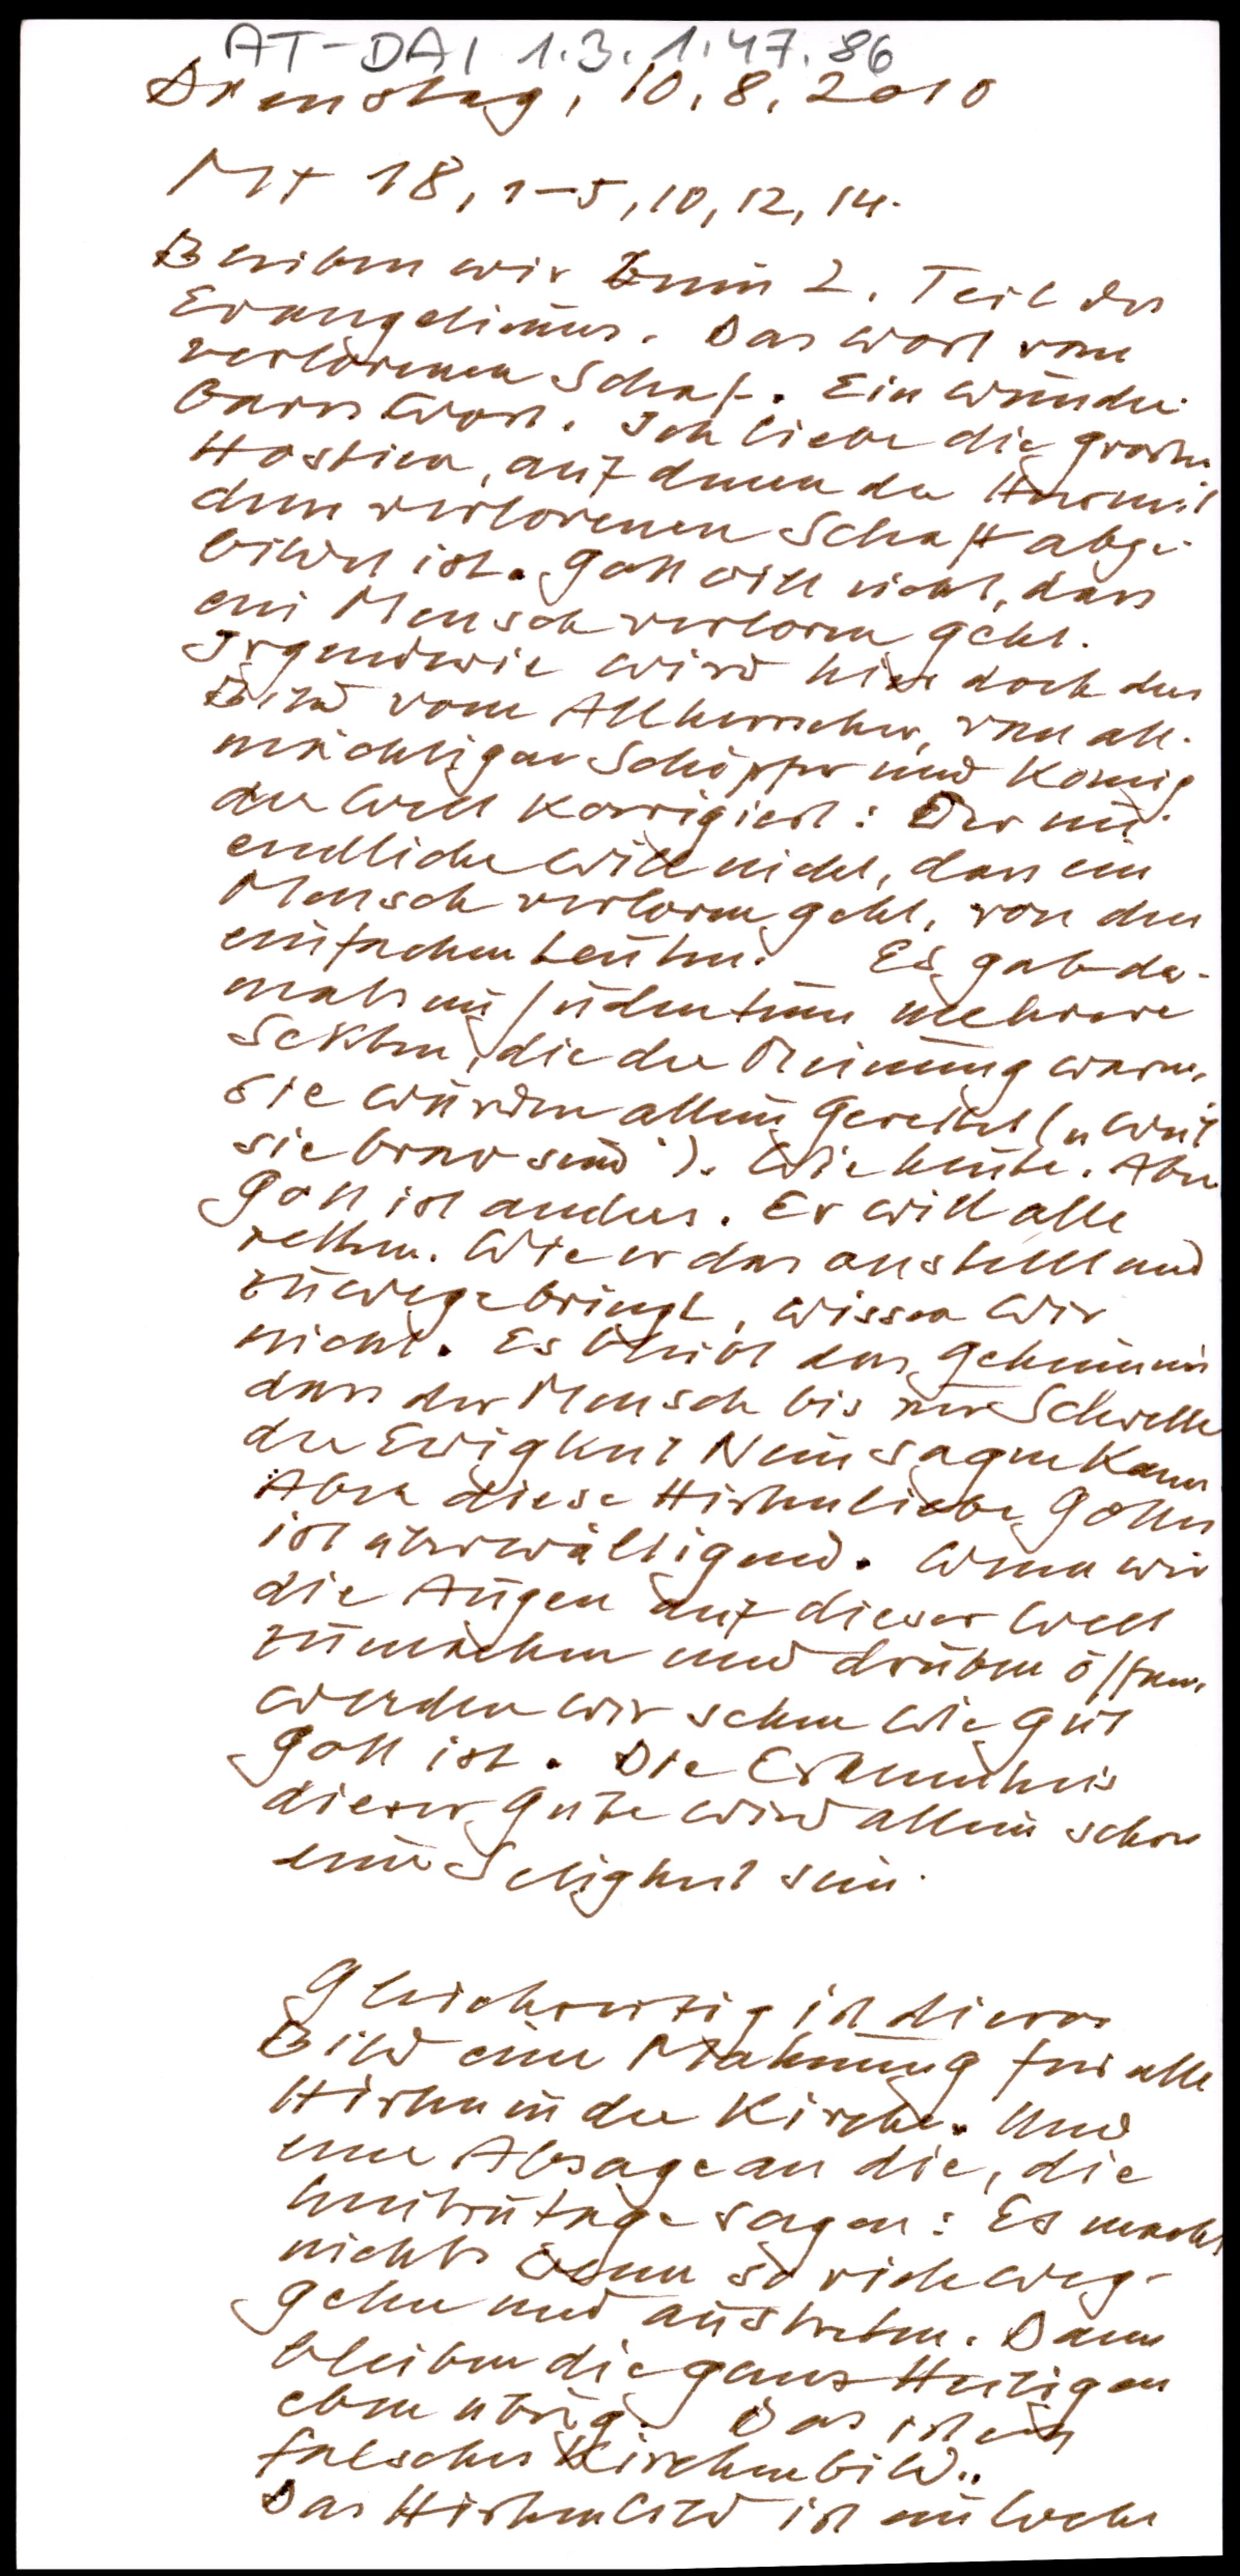 AT-DAI 1.3.1.47.86
Dienstag, 10.8.2010
Mt 18, 1-5, 10, 12, 14.
Bleiben wir beim 2. Teil des
Evangeliums. Das Wort vom
verlorenen Schaf. Ein wunder-
bares Wort. Ich liebe die grossen
Hostien, auf denen der Hirt mit
dem verlorenen Schaf abge-
bildet ist. Gott will nicht, dass
ein Mensch verloren geht.
Irgendwie wird hier doch das
Bild vom Allherrscher, vom all-
mächtigen Schöpfer und König
der Welt korrigiert: Der un-
endliche will nicht, dass ein
Mensch verloren geht, von den
einfachen Leuten. Es gab da-
mals im Judentum mehrere
Sekten, die der Meinung waren,
sie würden allein gerettet („weil
sie brav sind"). Wie heute. Aber
Gott ist anders. Er will alle
retten. Wie er das anstellt und
zuwege bringt, wissen wir
nicht. Es bleibt das Geheimnis
dass der Mensch bis zur Schwelle
der Ewigkeit Nein sagen kann
Aber diese Hirtenliebe Gottes
ist überwältigend. Wenn wir
die Augen auf dieser Welt
zumachen und drüben öffnen,
werden wir sehen wie gut
Gott ist. Die Erkenntnis
dieser Güte wird allein schon
eine Seligkeit sein.
Gleichzeitig ist dieses
Bild eine Mahnung für alle
Hirten in der Kirche. Und
eine Absage an die, die
heutzutage sagen: Es macht
nichts wenn so viele weg-
gehen und austreten. Dann
bleiben die ganz Heiligen
eben übrig. Das ist ein
falsches Kirchenbild.
Das Hirtenbild ist ein